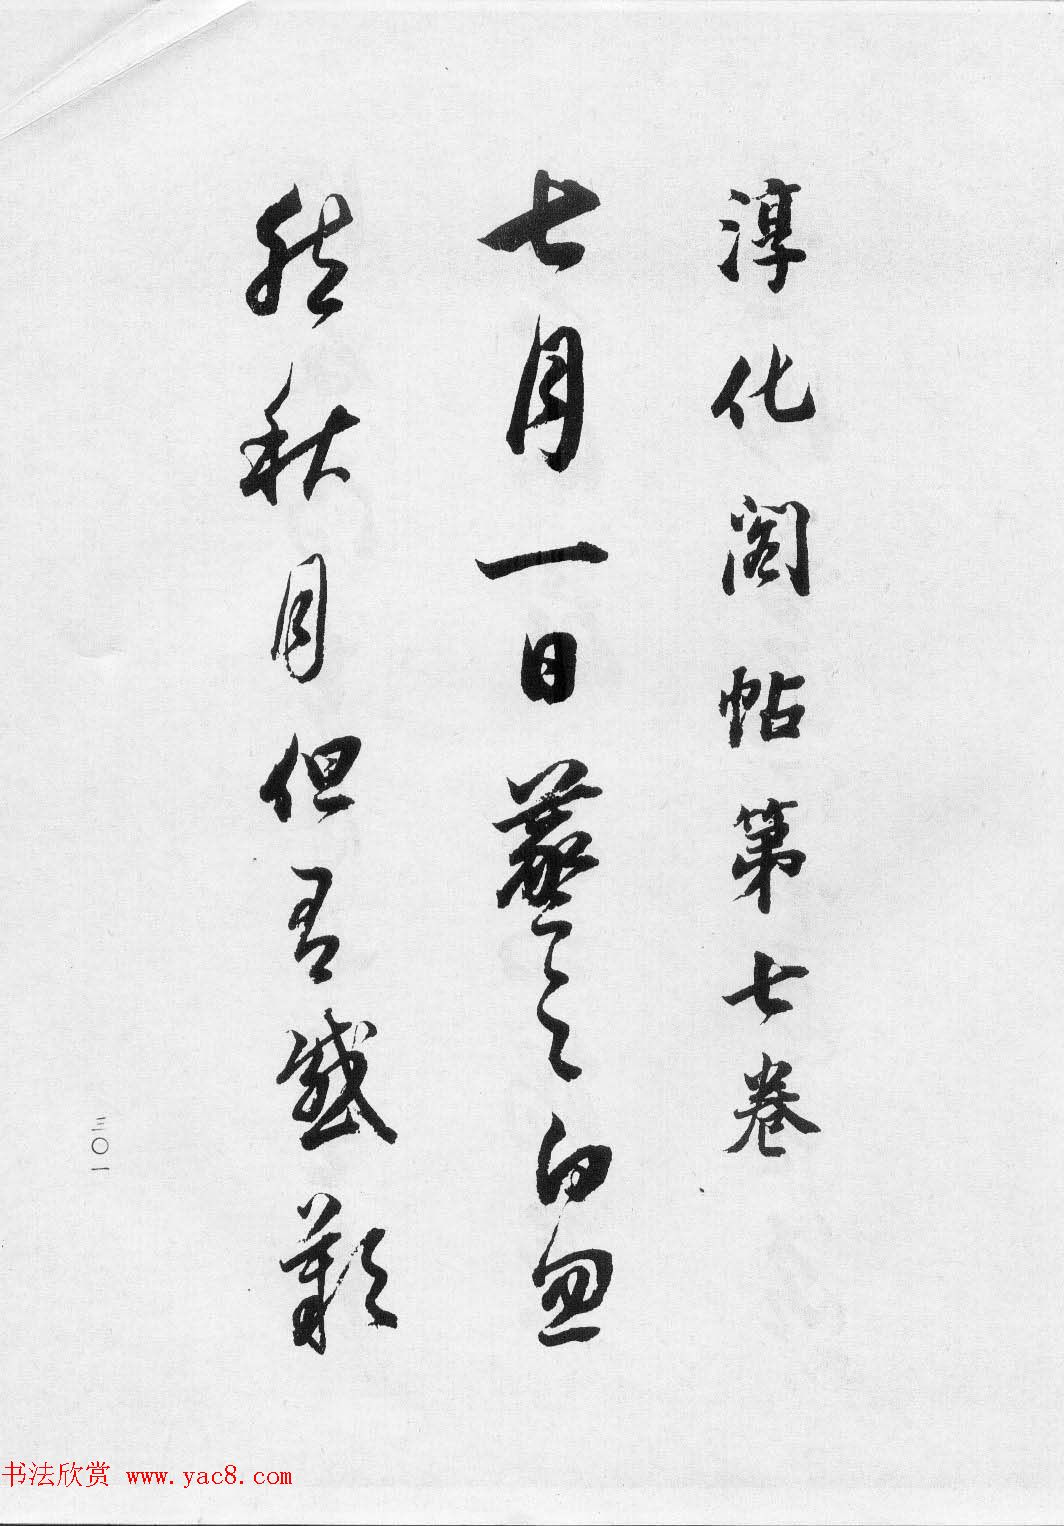 淳化閣帖第七卷
七月一日羲之白忽
然秋月但有感歎
三〇一
书法欣赏 www.yac8.com